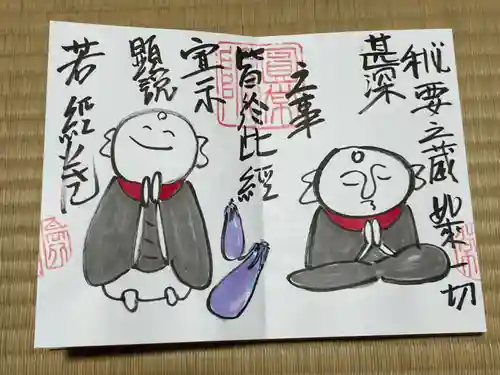 秘要之蔵如来一切
甚深
之事
皆於此經
宣示
顕説
若經